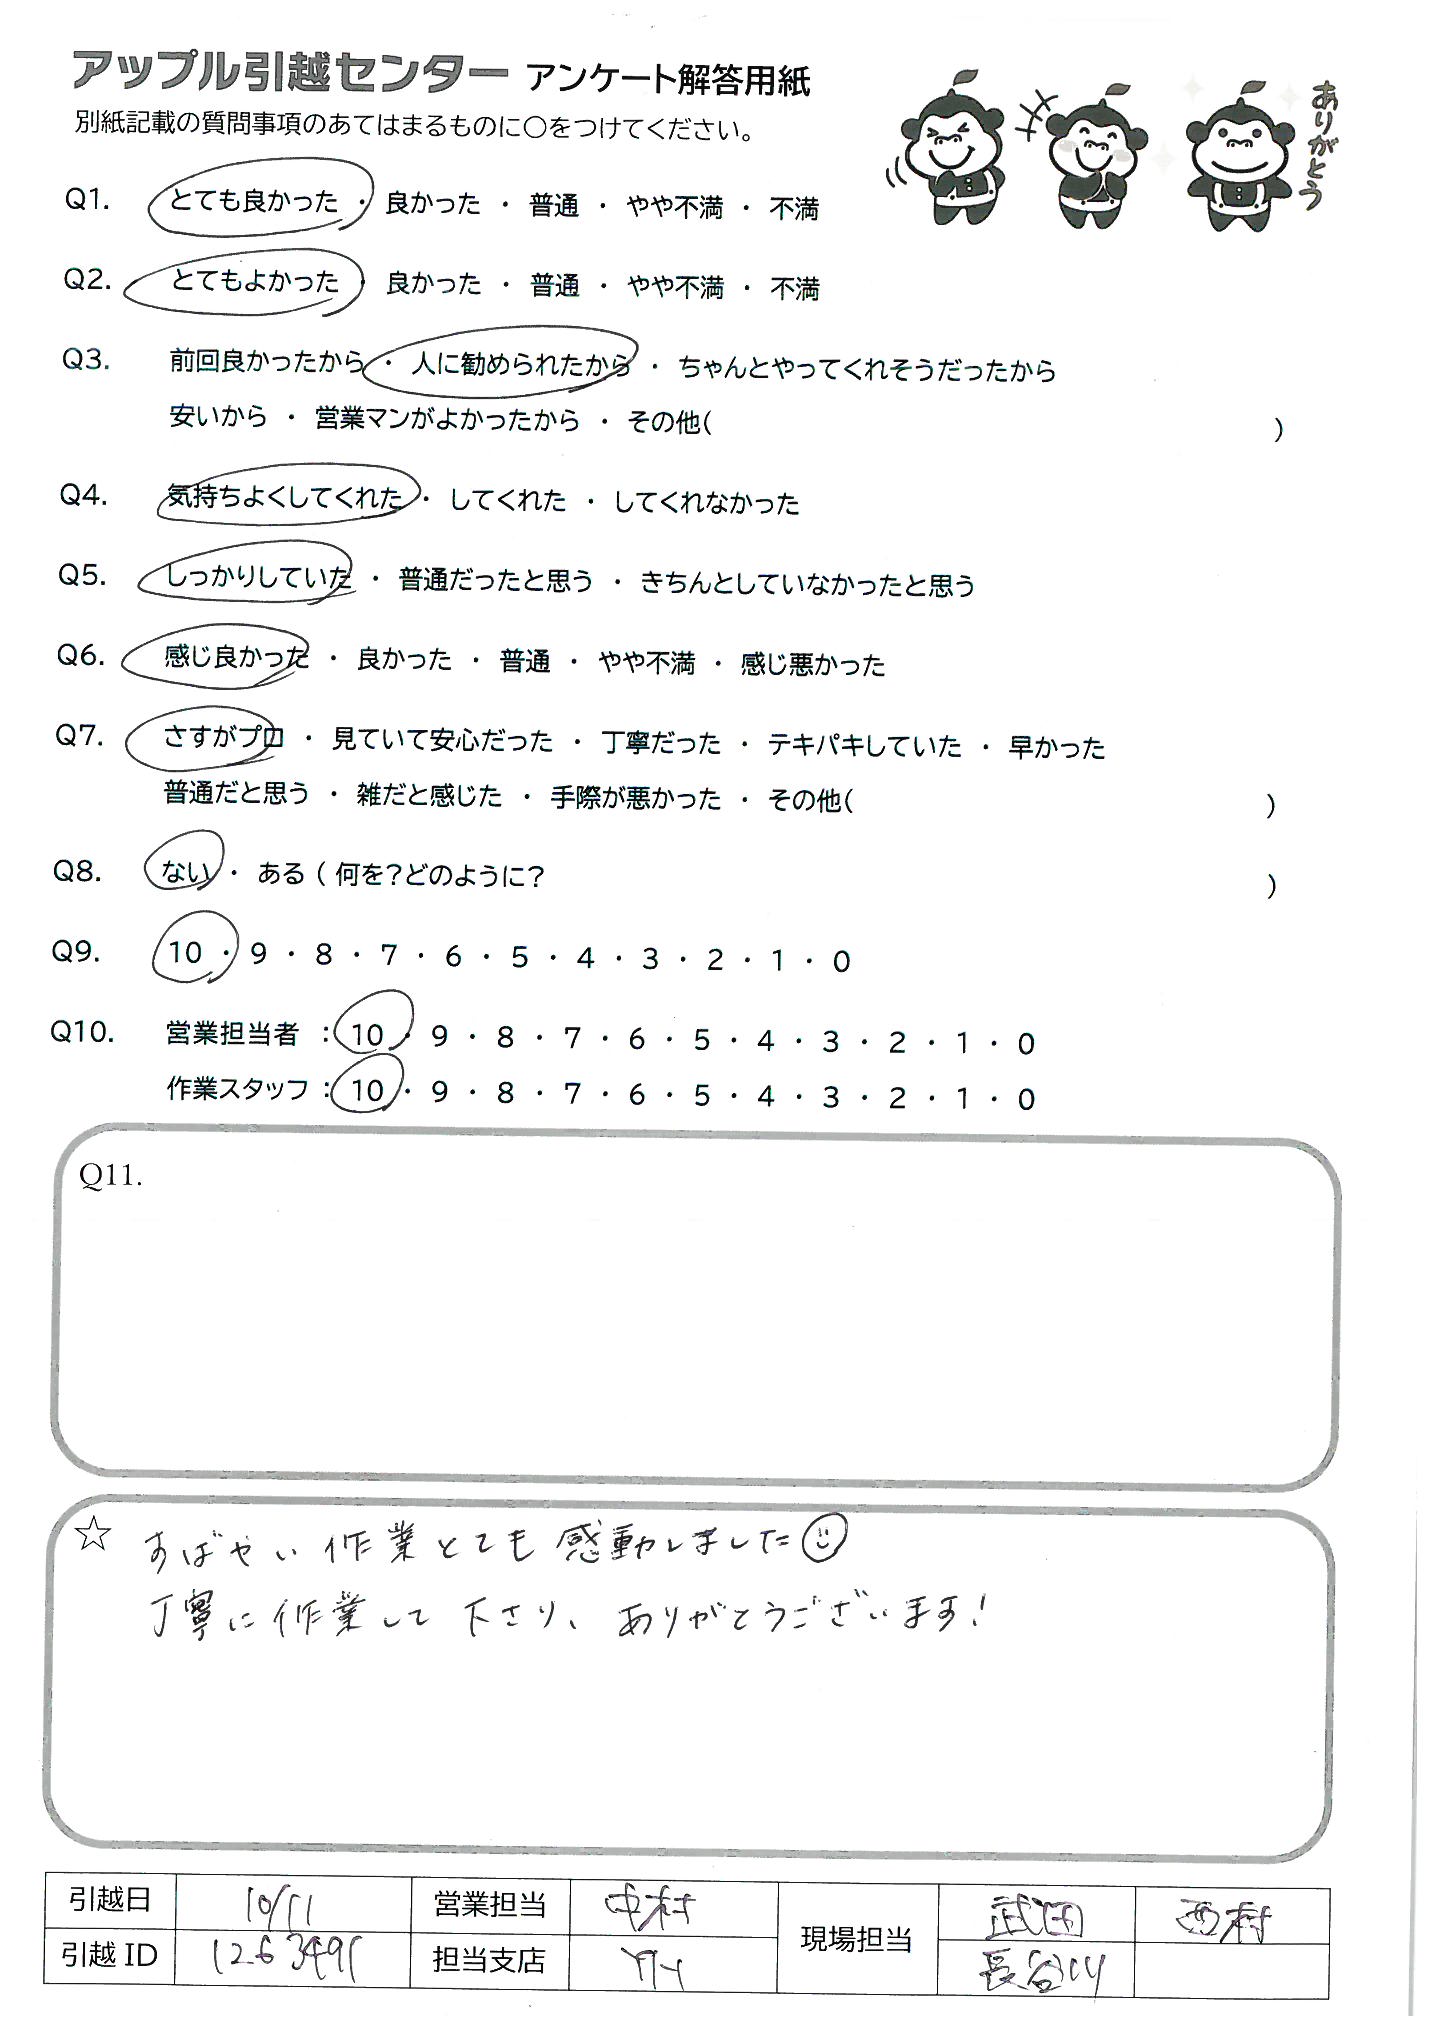 アップル引越センター アンケート解答用紙
別紙記載の質問事項のあてはまるものに○をつけてください。
ありがとう
Q1. とても良かった ・ 良かった ・ 普通 ・ やや不満 ・ 不満
Q2. とてもよかった ・ 良かった ・ 普通 ・ やや不満 ・ 不満
Q3. 前回良かったから ・ 人に勧められたから ・ ちゃんとやってくれそうだったから
安いから ・ 営業マンがよかったから ・ その他( )
Q4. 気持ちよくしてくれた ・ してくれた ・ してくれなかった
Q5. しっかりしていた ・ 普通だったと思う ・ きちんとしていなかったと思う
Q6. 感じ良かった ・ 良かった ・ 普通 ・ やや不満 ・ 感じ悪かった
Q7. さすがプロ ・ 見ていて安心だった ・ 丁寧だった ・ テキパキしていた ・ 早かった
普通だと思う ・ 雑だと感じた ・ 手際が悪かった ・ その他( )
Q8. ない ・ ある ( 何を?どのように? )
Q9. 10 ・ 9 ・ 8 ・ 7 ・ 6 ・ 5 ・ 4 ・ 3 ・ 2 ・ 1 ・ 0
Q10. 営業担当者 : 10 ・ 9 ・ 8 ・ 7 ・ 6 ・ 5 ・ 4 ・ 3 ・ 2 ・ 1 ・ 0
作業スタッフ : 10 ・ 9 ・ 8 ・ 7 ・ 6 ・ 5 ・ 4 ・ 3 ・ 2 ・ 1 ・ 0
Q11.
☆ すばやい作業とても感動しました
丁寧に作業して下さり、ありがとうございます!
引越日 10/11 営業担当 中村 現場担当 武田 西村
引越ID 1263491 担当支店 長谷川